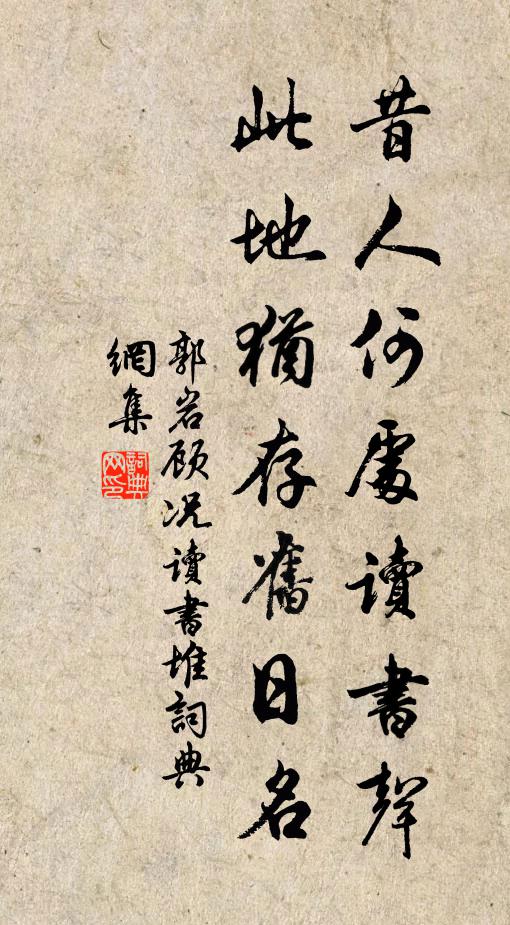 昔人何處讀書聲
此地猶存舊日名
郭岩顾况讀書堆詞典
網集
詞典
网印